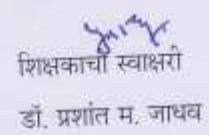 शिक्षकाची स्वाक्षरी
डॉ. प्रशांत म. जाधव